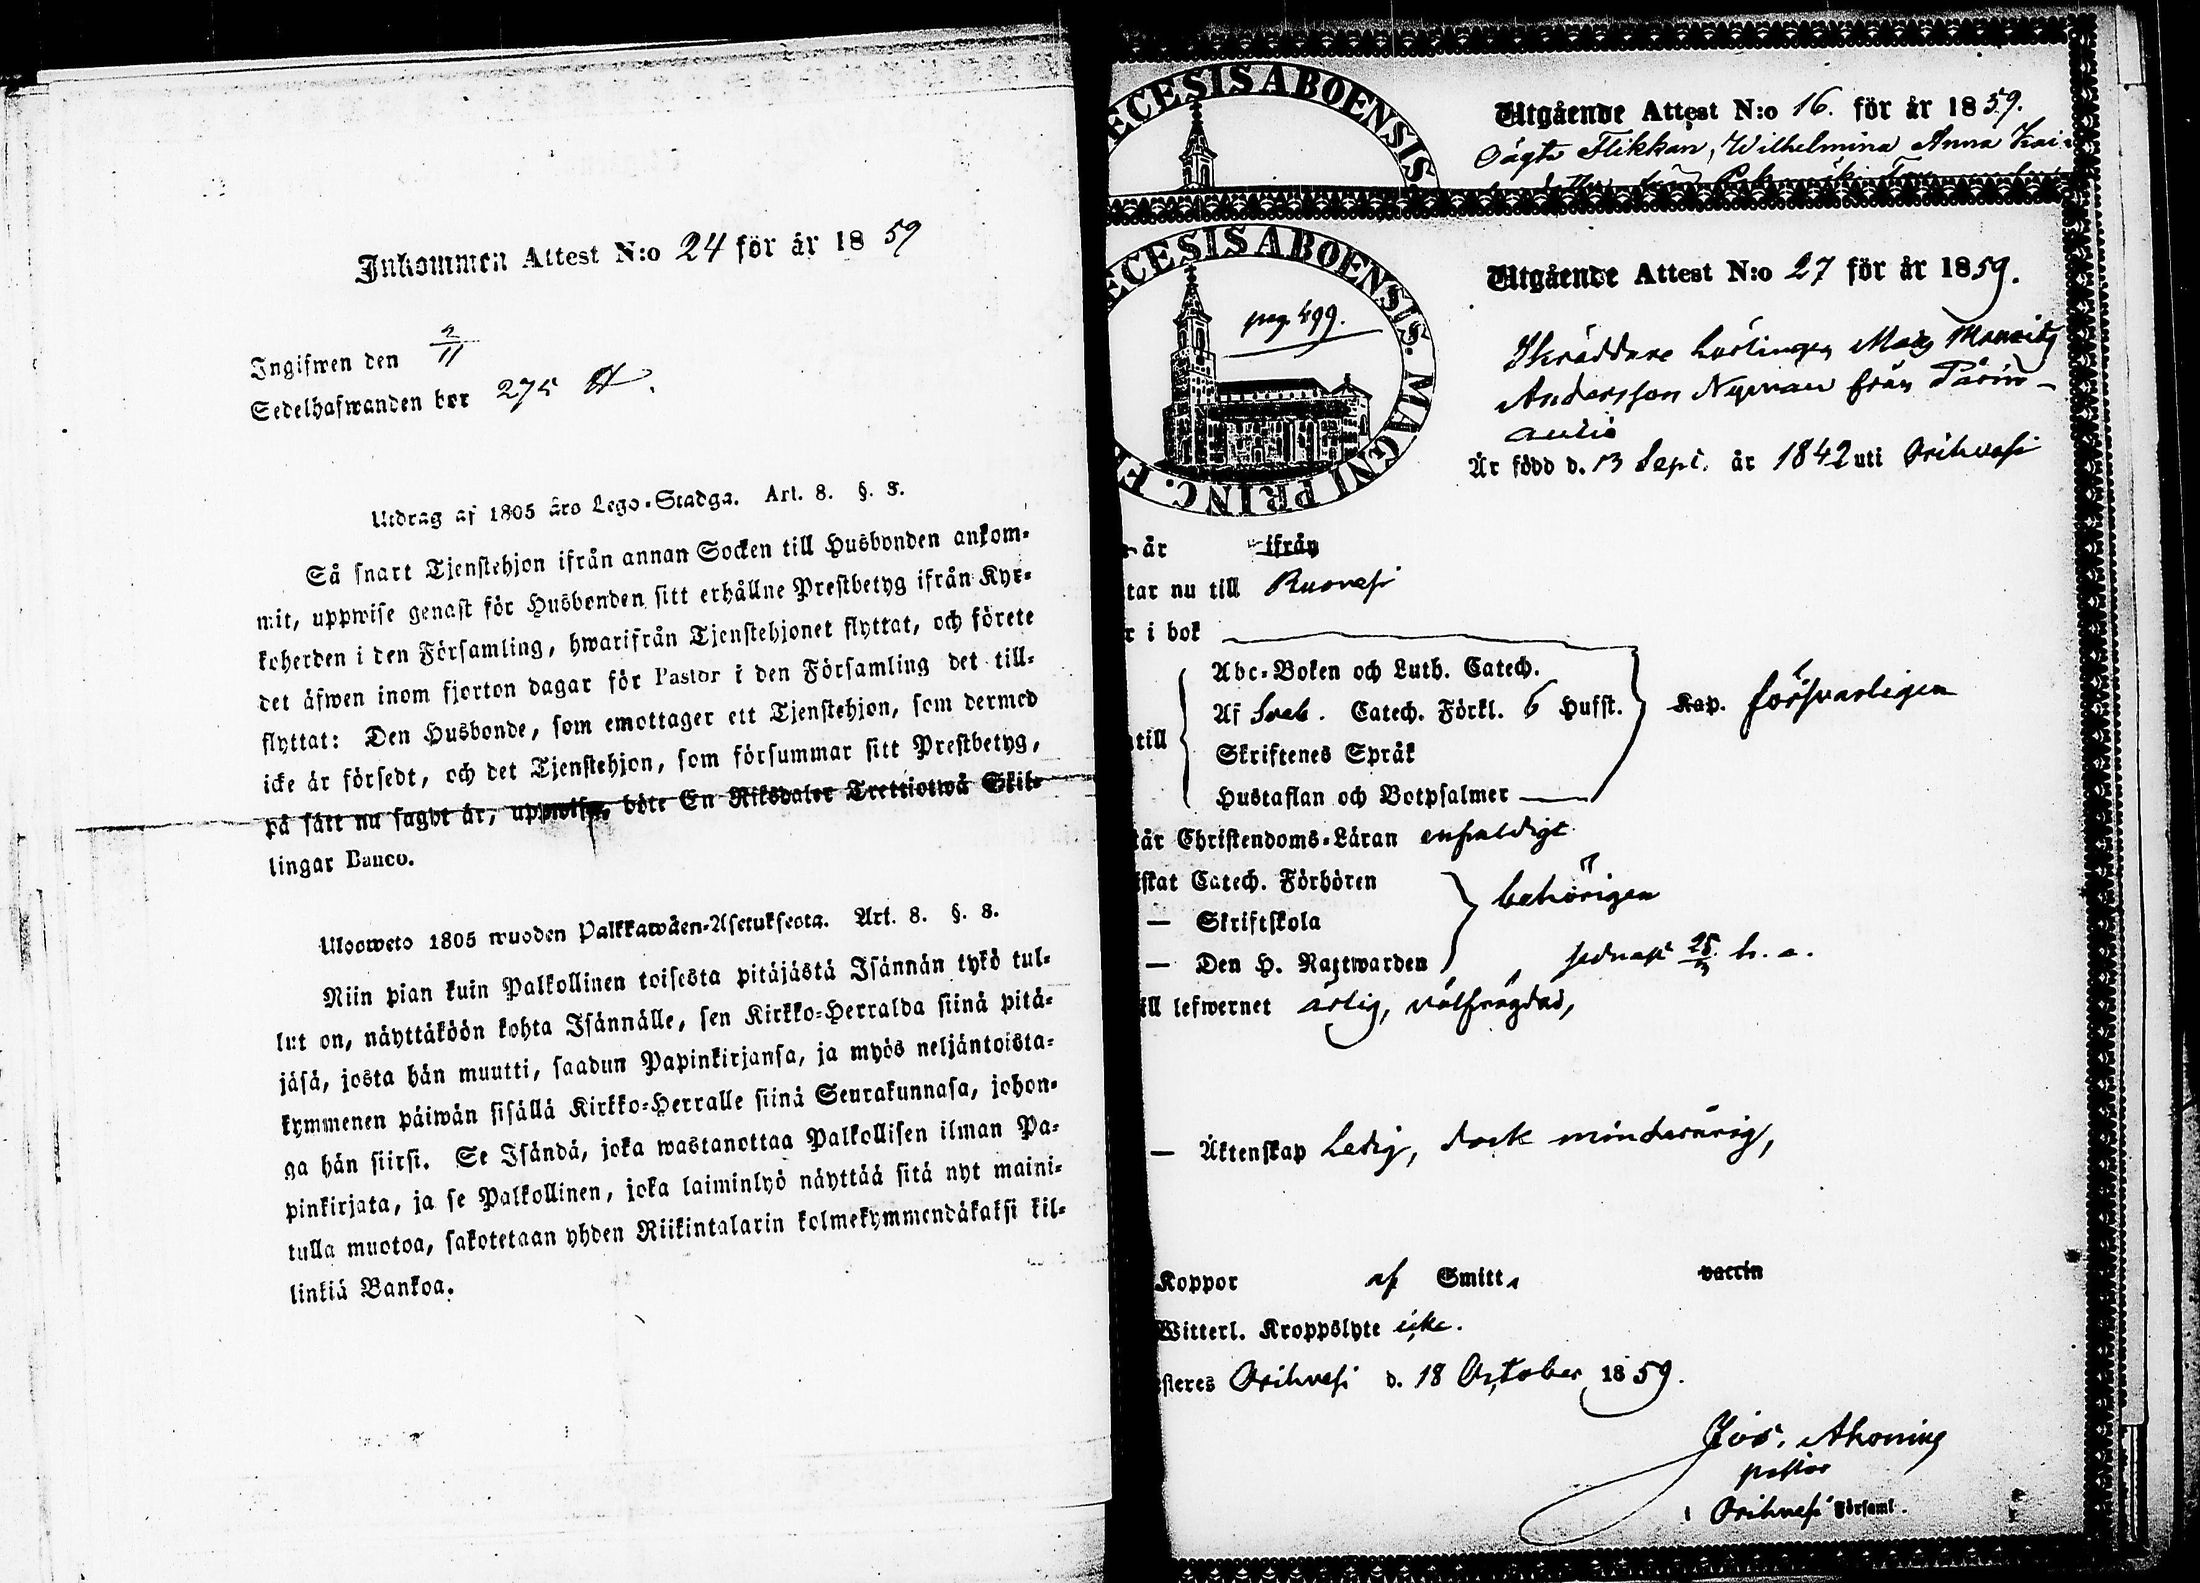 Inkommen Attest N:o 24 för år 18 59
Ingifwen den 2/11
Sedelhafwanden bor 275
Utdrag af 1805 års Lego-Stadga. Art. 8. §. 8.
Så snart Tjenstehjon ifrån annan Socken till Husbonden ankom-
mit, uppwise genast för Husbonden sitt erhållne Prestbetyg ifrån Kyr-
koherden i den Församling, hwarifrån Tjenstehjonet flyttat, och förete
det äfwen inom fjorton dagar för Pastor i den Församling det till-
flyttat: Den Husbonde, som emottager ett Tjenstehjon, som dermed
icke är försedt, och det Tjenstehjon, som försummar sitt Prestbetyg,
på sätt nu sagdt är, uppwisa, böte En Riksdaler Trettiotwå Skil-
lingar Banco.
Ulosweto 1805 wuoden Palkkawäen-Asetuksesta. Art. 8. §. 8.
Niin pian kuin Palkollinen toisesta pitäjästä Isännän tykö tul-
lut on, näyttäköön kohta Isännälle, sen Kirkko-Herralda siinä pitä-
jäsä, josta hän muutti, saadun Papinkirjansa, ja myös neljäntoista-
kymmenen päiwän sisällä Kirkko-Herralle siinä Seurakunnasa, johon-
ga hän siirsi. Se Isändä, joka wastanottaa Palkollisen ilman Pa-
pinkirjata, ja se Palkollinen, joka laiminlyö näyttää sitä nyt maini-
tulla muotoa, sakotetaan yhden Riikintalarin kolmekymmendäkaksi kil-
linkiä Bankoa.
ECESIS ABOENSIS
Utgående Attest N:o 16. för år 1859.
Flikkan, Wilhelmina Anna
ECESIS ABOENSIS. MAGNI PRINC. F
pag. 499.
Utgående Attest N:o 27 för år 1859.
Skräddare Lärlingen Mats Mauritz
Andersson Nyman från Pärin-
Är född d. 13 Sept. år 1842 uti Orihvesi
är ifrån
tar nu till Ruovesi
r i bok
till
Abc-Boken och Luth. Catech.
Af Sveb. Catech. Förkl. 6 Hufst. Kap. försvarligen
Skriftenes Språk
Hustaflan och Botpsalmer
tår Christendoms-Läran enfaldigt
istat Catech. Förhören
behörigen
— Skriftskola
— Den H. Nattwarden sednast 25 h. a.
ill lefwernet ärlig, välfrägdad,
— Äktenskap Ledig, dock minderårig,
Koppor af Smitta vaccin
Witterl. Kroppslyte icke.
steres Orihvesi d. 18 October 1859.
Jos. Ahoning
pastor
i Orihvesi Församl.